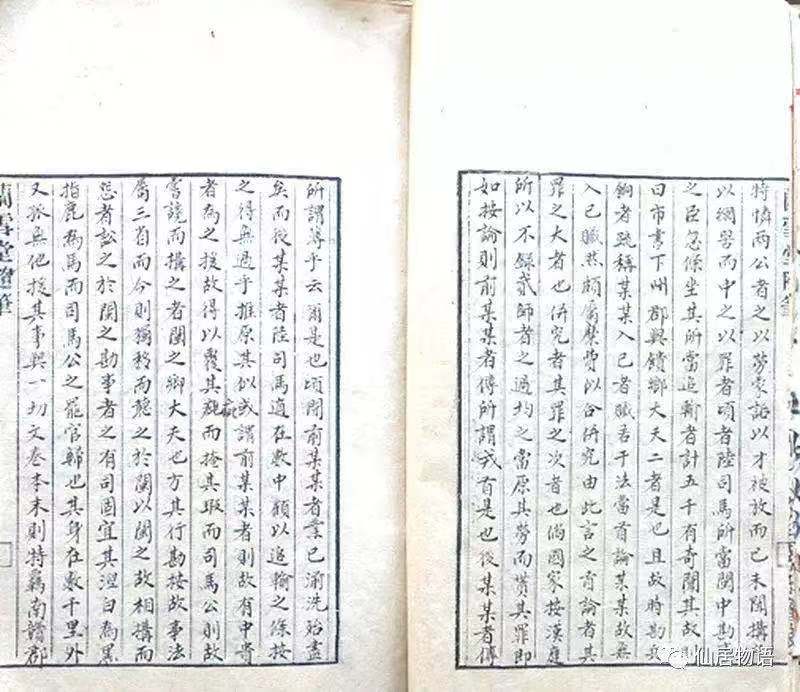 特憐兩公者之以勞蒙詬以才被放而已未聞搆
以網罟而中之以罪者頃者陸司馬所當閩中勘
之臣忽條坐其所當追輸者計五千有奇闕其故則
曰市書下州郡與饋鄉大夫二者是也且故時勘兵
餉者疏稱某某入已者贓若干法當首論某某故無
入已贓然頗屬縻費以合併究由此言之首論者其
罪之大者也併究者其罪之次者也倘國家按漢庭
所以不錄貳師者之過均之當原其勞而貰其罪即
如按論則前某某者傅所謂戎首是也後某某者傅
所謂薄乎云爾是也頃聞前某某者業已湔洗殆盡
矣而後某某者陸司馬適在數中顧以追輸之條按
之得無過乎推原其似或謂前某某者則故有中貴
者為之援故得以覆其疵而掩其瑕而司馬公則故
嘗譏而搆之者閩之鄉大夫也方其行勘按故事法
當三省而今則獨移而聽之於閩以閩之故相搆而
忌者訟之於閩之勘事者之有司固宜其涅白為黑
指鹿為馬而司馬公之罷官歸也其身在數千里外
又孤無他援其事與一切文卷本末則特竊南贛郡
雪堂
仙居物语